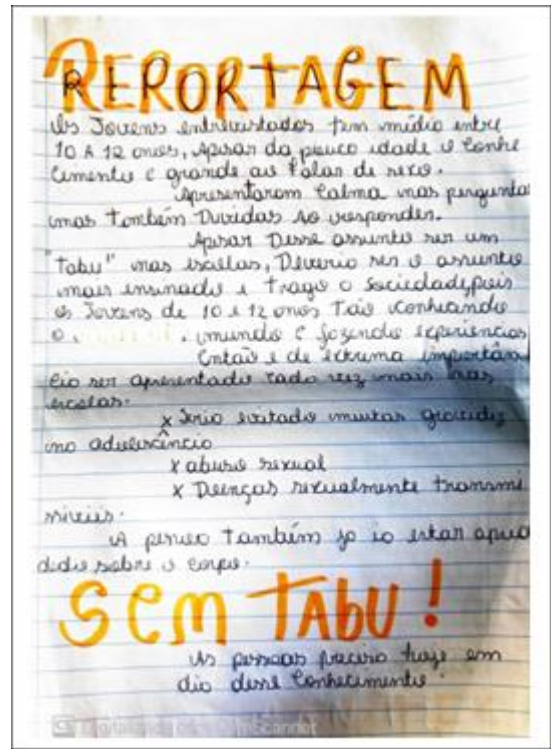 RERORTAGEM
Os Jovens entrevistados tem médio entre
10 A 12 anos, Apisar da pouco idade o Conhe
Cimento é grande ao Falar de sexo.
Apresentarom Calma nas pergunta
mas Também Duvidas Ao responder.
Apisar Desse assunto ser um
"Tabu" nas escolas, Deverio ser o assunto
mais ensinado e trago o sociedade, pois
os Jovens de 10 a 12 anos Tão Conheando
o mundo e fazendo experiencias
Então é de extrema importân
Cio ser apresentado cada vez mais nas
escolas.
x Serio evitado muitas gravidez
na adolescêncio
x abuso sexual
x Doenças sexualmente transmi
ssiveis.
A pessoa também jo io estar
sobre o corpo.
SEM TABU!
As pessoas preciso hoje em
dia desse Conhecimento
CamScanner